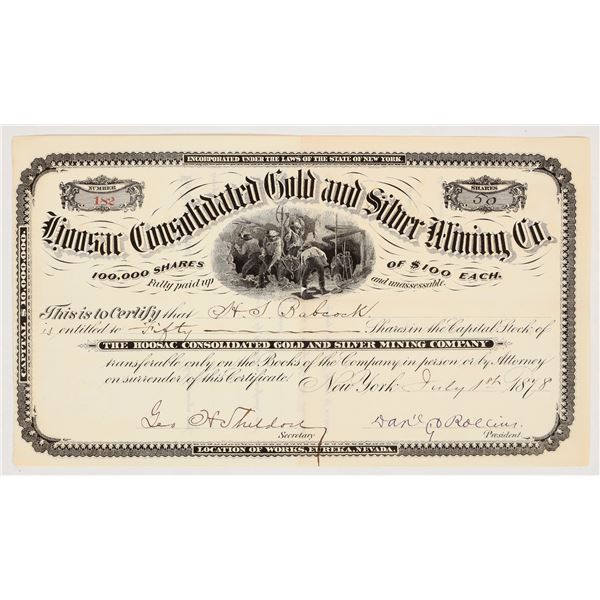 INCORPORATED UNDER THE LAWS OF THE STATE OF NEW YORK.
NUMBER
182
SHARES
50
Hoosac Consolidated Gold and Silver Mining Co.
100,000 SHARES OF $100 EACH.
Fully paid up and unassessable.
CAPITAL $10,000,000.
This is to Certify that H. S. Babcock
is entitled to Fifty Shares in the Capital Stock of
THE HOOSAC CONSOLIDATED GOLD AND SILVER MINING COMPANY
transferable only on the Books of the Company in person or by Attorney
on surrender of this Certificate. New York July 1st 1878
Geo H Sheldon
Secretary
Dan'l G Rollins.
President.
LOCATION OF WORKS, EUREKA, NEVADA.